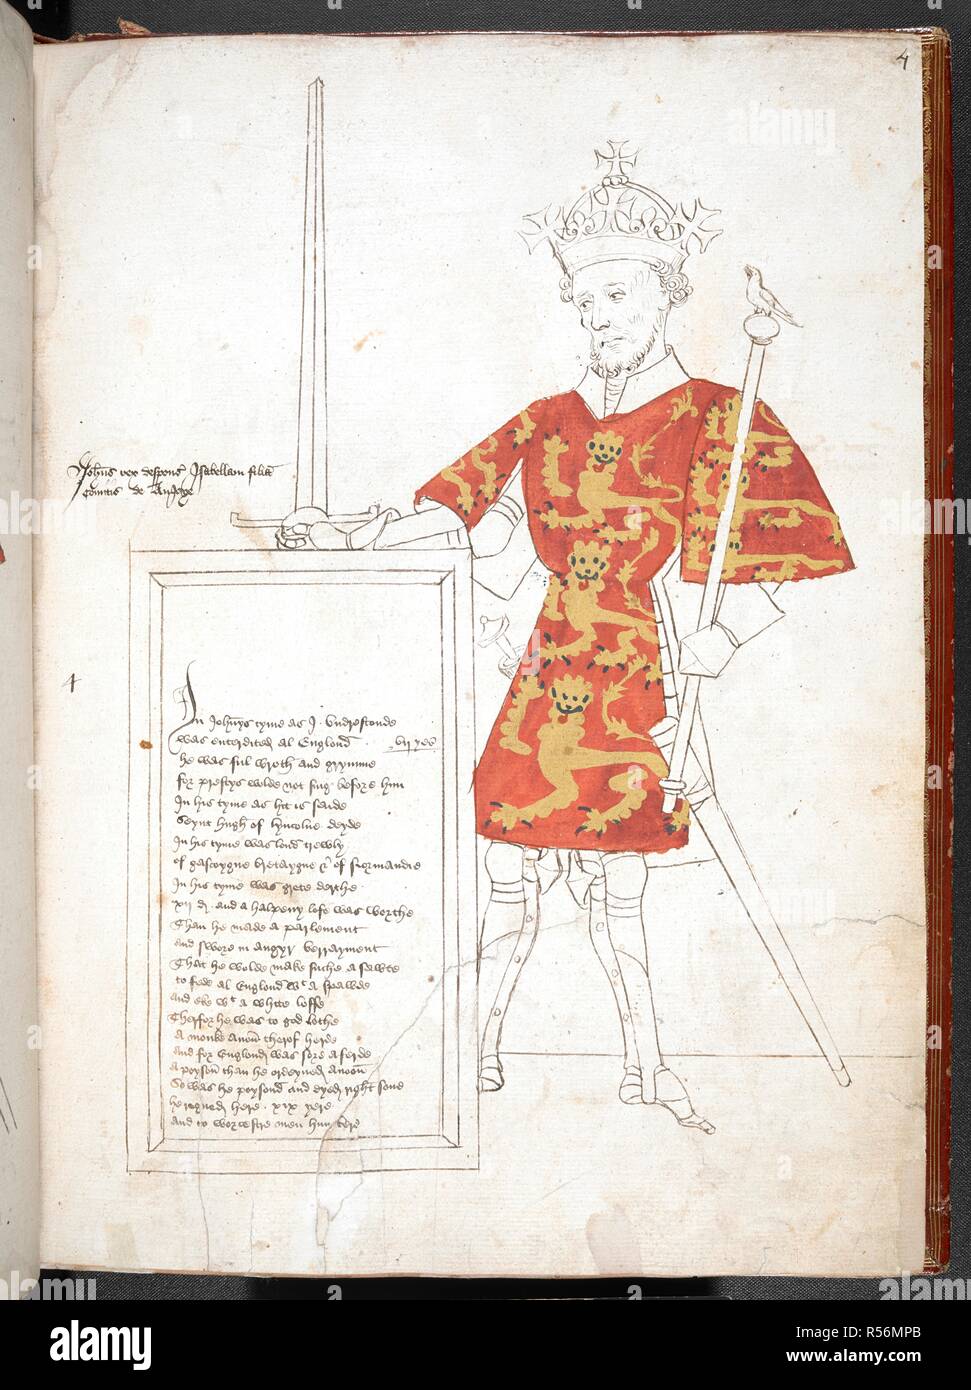 4
Johēs rex despons Isabellam filiā
comitis de
4
In Johnys tyme as I vndrestonde
was enterdited al Englond vij yer
he was ful wroth and grymme
for prestys wolde not sing before hym
In his tyme as hit is seide
Seynt hugh of lyncolne deyde
In his tyme was lond trewly
of gascoygne bretaygne & of normandie
In his tyme was grete derthe
xij d. and a halpeny lofe was worthe
Than he made a parlement
And swore in angyr verrayment
That he wolde make suche a sawte
to fede al Englond wt a
and eke wt a white loffe
Therfor he was to god lothe
a monke anon therof herde
And for Englond was sore a ferde
a poyson than he ordeyned anoon
So was he poysond and dyed right sone
he regned here xix yere
and to worcestre men him bere
alamy
Image ID: R56MPB
www.alamy.com